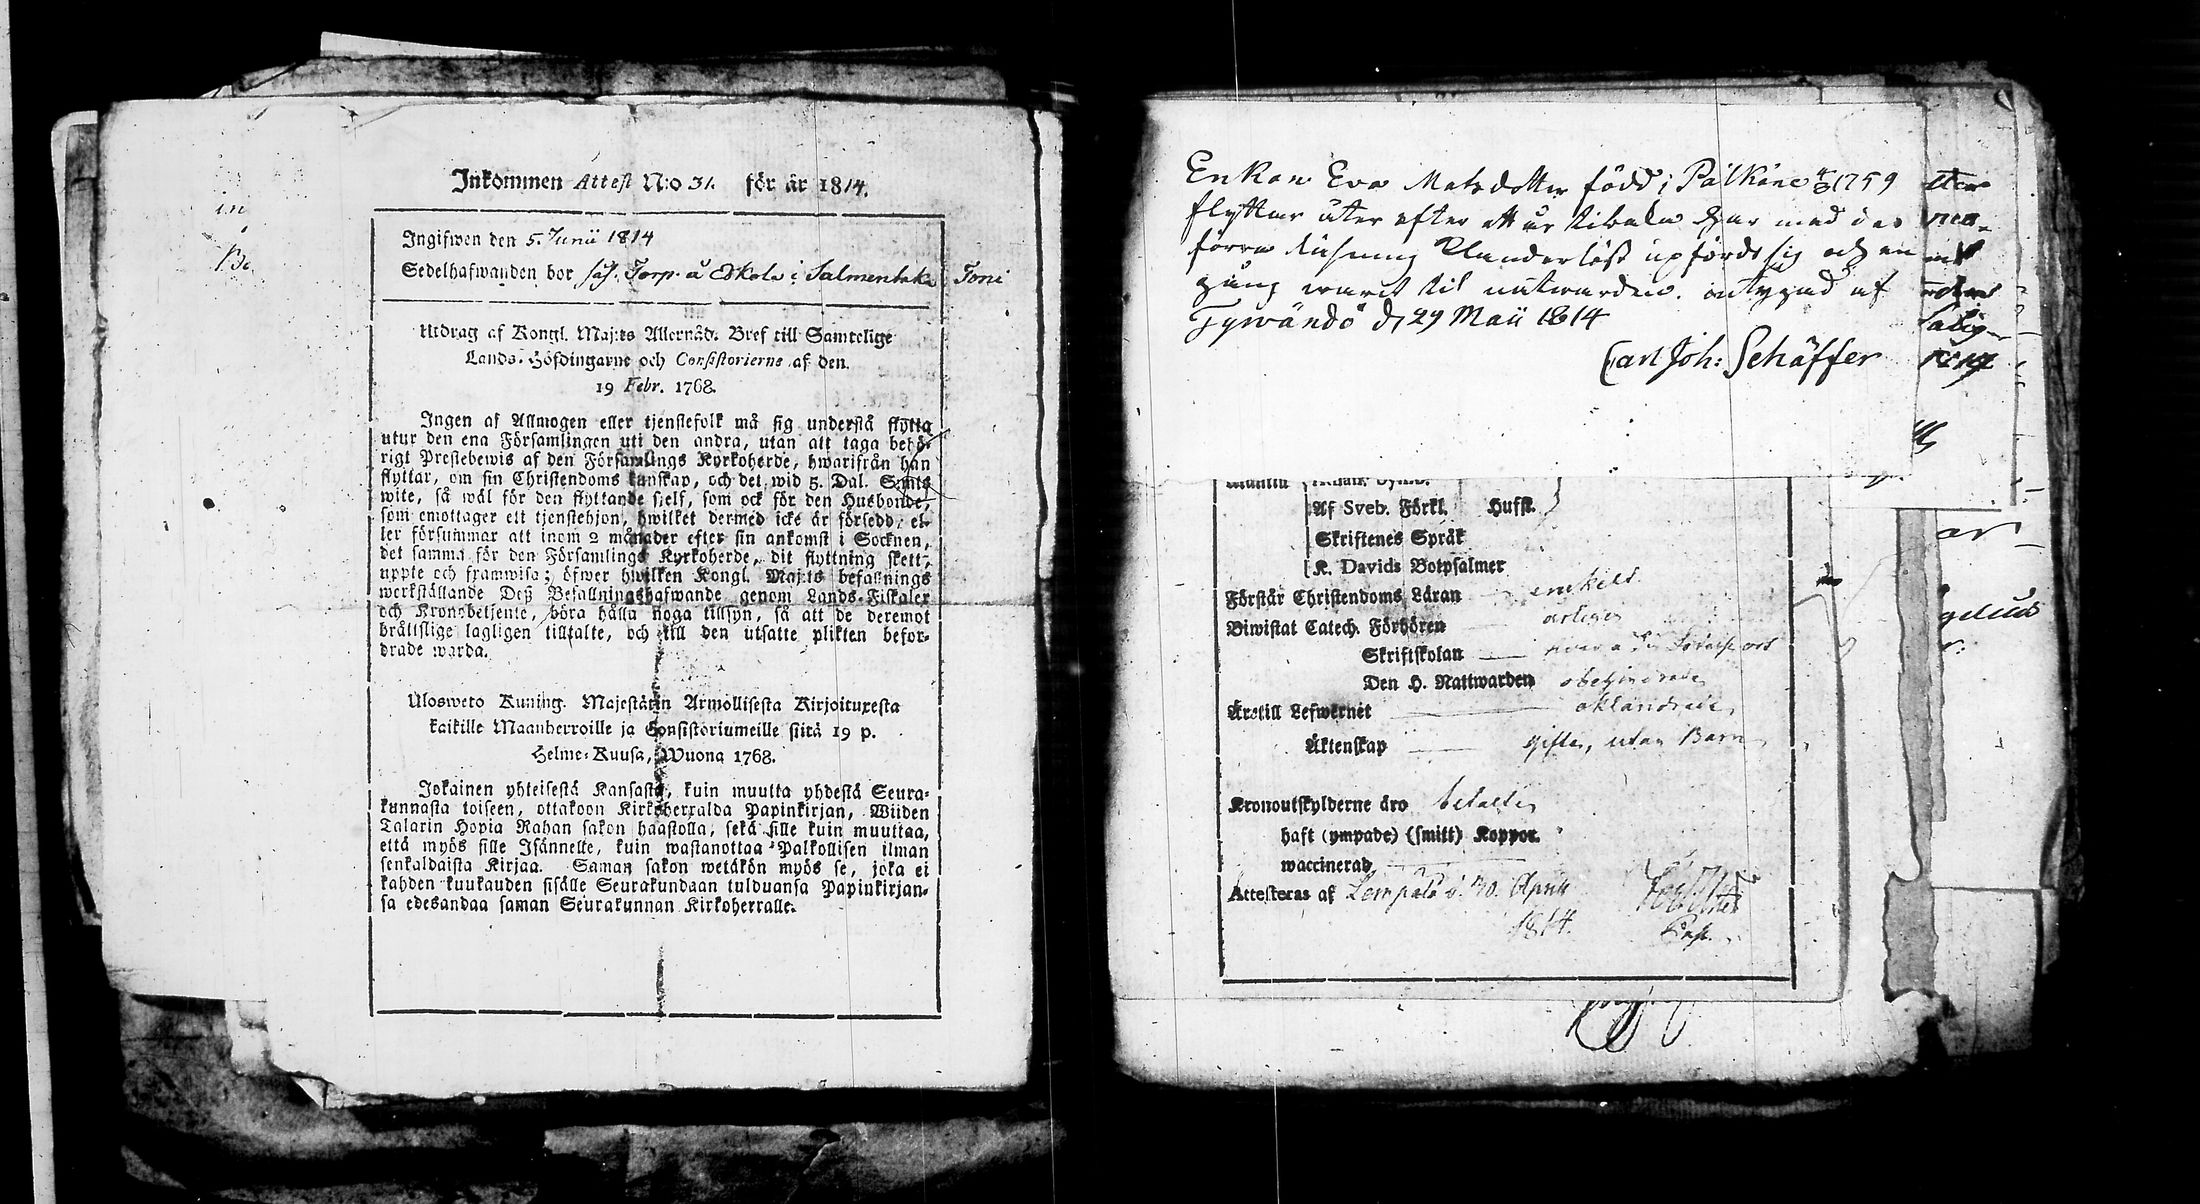 Inkommen Attest N:o 31. för år 1814.
Ingifwen den 5. Junii 1814
Sedelhafwanden bor Torp å Eskola i Salmentaka
Utdrag af Kongl. Maj:ts Allernåd. Bref till Samtelige
Lands-Höfdingarne och Consistorierne af den.
19 Febr. 1768.
Ingen af Allmogen eller tjenstefolk må sig understå flytta
utur den ena Församlingen uti den andra, utan att taga behö-
rigt Prestebewis af den Församlings Kyrkoherde, hwarifrån han
flyttar, om sin Christendoms kunskap, och det wid 5. Dal. S:mts
wite, så wäl för den flyttande sjelf, som ock för den Husbonde,
som emottager ett tjenstehjon, hwilket dermed icke är försedd, el-
ler försummar att inom 2 månader efter sin ankomst i Socknen,
det samma för den Församlings Kyrkoherde, dit flyttning skett,
uppte och framwisa; öfwer hwilken Kongl. Maj:ts befallnings
werkställande Deß Befallningshafwande genom Lands-Fiskaler
och Kronobetjente, böra hålla noga tillsyn, så att de deremot
bråttslige lagligen tilltalte, och till den utsatte plikten befor-
drade warda.
Ulosweto Kuning. Majestätin Armollisesta Kirjoituxesta
kaikille Maanherroille ja Consistoriumeille siitä 19 p.
Helme-Kuusa, Wuona 1768.
Jokainen yhteisestä Kansasta, kuin muutta yhdestä Seura-
kunnasta toiseen, ottakoon Kirkoherralda Papinkirjan, Wiiden
Talarin Hopia Rahan sakon haastolla, sekä sille kuin muuttaa,
että myös sille Isännelle, kuin wastanottaa Palkollisen ilman
senkaldaista Kirjaa. Saman sakon wetäkön myös se, joka ei
kahden kuukauden sisälle Seurakundaan tulduansa Papinkirjan-
sa edesandaa saman Seurakunnan Kirkoherralle.
Enkan Eva Matsdotter född i Pälkäne 1759
flyttar åter efter ett år tilbaka har med des
förra läsning Klanderlöst upfördt sig och en
gång warit til nattwarden. intygad af
Tyrwändö d. 29 Maii 1814
Carl Joh: Schäffer
Af Sveb. Förkl. Hufst.
Skriftenes Språk
K. Davids Botpsalmer
Förstår Christendoms Läran enkelt
Biwistat Catech. Förhören
Skriftskolan
Den H. Nattwarden obehindrade
Ärstill Lefwernet oklandrade
Äktenskap gifte, utan Barn
Kronoutskylderne äro betalte
haft (ympade) (smitt) Koppor.
waccinerad
Attesteras af Lempälä d. 30. April
1814. Past.